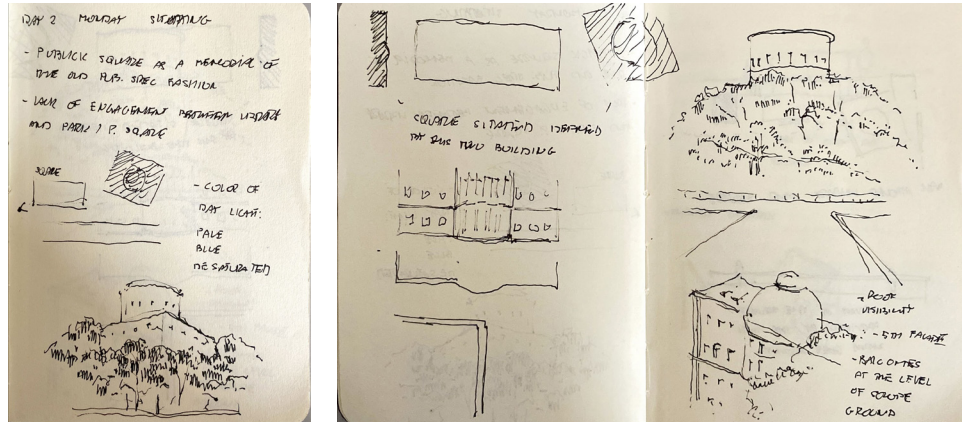 DAY 2 MONDAY
- PUBLICK SQUARE AS A MEMORIAL OF
THE OLD PUB. SPEC FASHION
- LACK OF ENGAGEMENT BETWEEN
AND PARK / P. SQUARE
SQUARE
- COLOR OF
DAY LIGHT:
PALE
BLUE
DESATURATED
SQUARE SITUATED DEFINED
BY THE NEW BUILDING
- ROOF
VISIBILITY
- 5TH FACADE
- BALCONIES
AT THE LEVEL
OF
GROUND